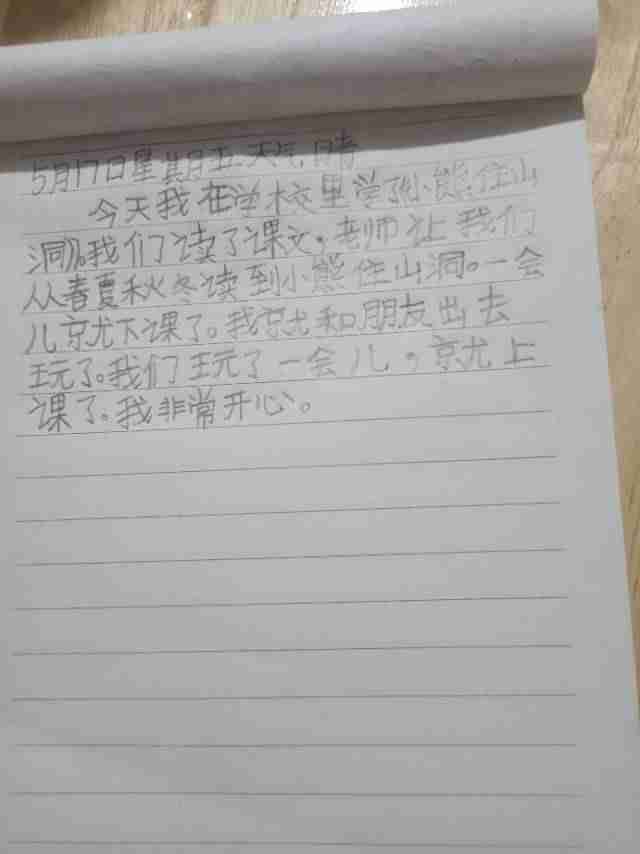 5月17日星期五天气晴
今天我在学校里学了小熊住山
洞。我们读了课文，老师让我们
从春夏秋冬读到小熊住山洞。一会
儿就下课了。我就和朋友出去
玩了。我们玩了一会儿，就上
课了。我非常开心。